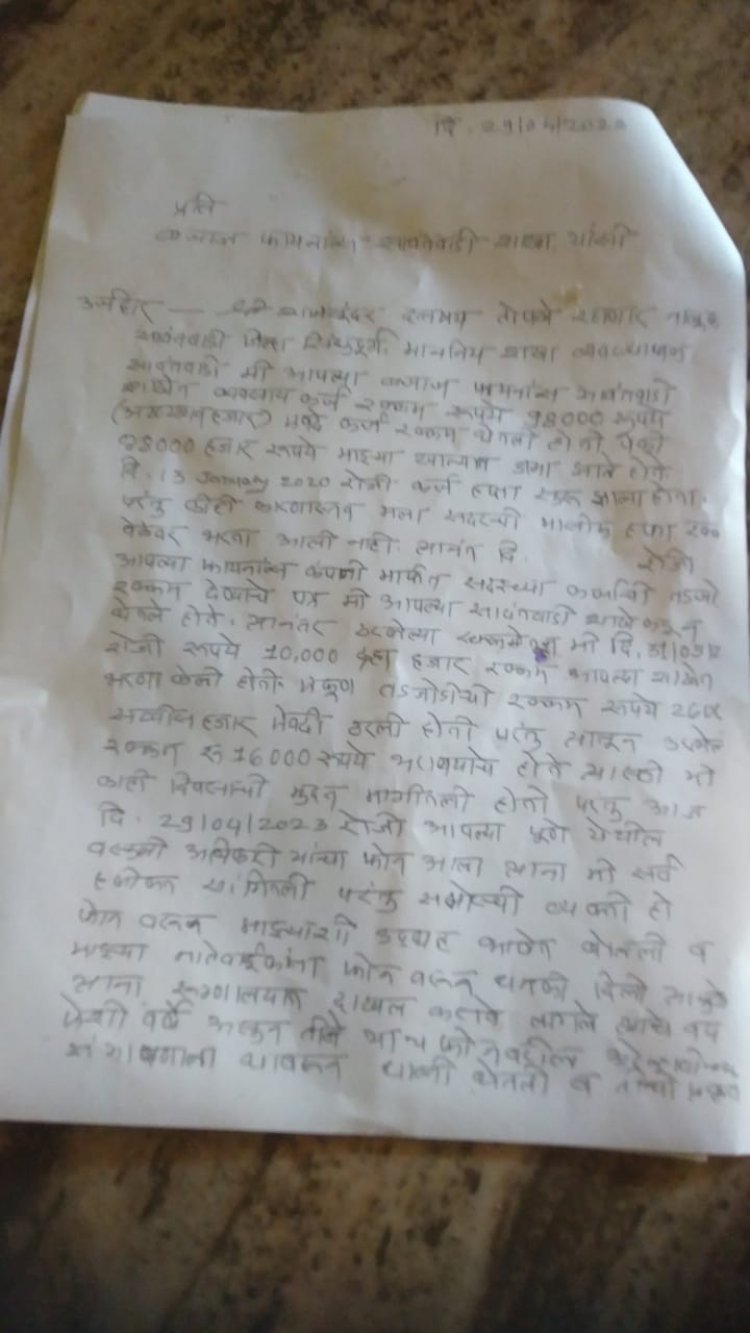 दि. 29/04/202
प्रति
बजाज फायनान्स सावंतवाडी शाखा यांसी
अर्जदार — श्री राहणार तालुका
सावंतवाडी जिल्हा सिंधुदुर्ग माननिय शाखा व्यवस्थापक
सावंतवाडी मी आपल्या बजाज फायनान्स सावंतवाडी
शाखेत व्यवसाय कर्ज रक्कम रूपये 98000 रूपये
हजार) कर्ज रक्कम घेतली होती पैकी
हजार रूपये माझ्या खात्यात जमा झाले होते
दि. 13 January 2020 रोजी कर्ज हप्ता सुरू झाला होता.
परंतु काही कारणास्तव मला सदरची मासीक हप्ता रक्कम
वेळेवर भरता आली नाही. त्यानंतर दि. रोजी
आपल्या फायनान्स कंपनी मार्फत सदरच्या कर्जाची तडजोड
रक्कम देण्याचे पत्र मी आपल्या सावंतवाडी शाखेकडून
घेतले होते. त्यानंतर ठरलेल्या मी दि. 31/03/2
रोजी रूपये 10,000 दहा हजार रक्कम आपल्या शाखेत
भरणा केली होती. एकूण तडजोडीची रक्कम रूपये
सव्वीस हजार ठरली होती परंतु त्यातून
रक्कम रु 16000 रूपये भरावयाचे होते त्यासाठी मी
काही दिवसाची मुदत मागीतली होती परंतु आज
दि. 29/04/2023 रोजी आपल्या पुणे येथील
वसुली अधिकारी यांचा फोन आला त्यांना मी सर्व
हकीकत सांगितली परंतु समोरची व्यक्ती ही
फोन वरून माझ्याशी उद्धट भाषेत बोलली व
माझ्या नातेवाईकांना फोन करून धमकी दिली त्यामुळे
त्यांना रूग्णालयात दाखल करावे लागले त्यांचे वय
वर्षे असून
घाबरून घेतली व